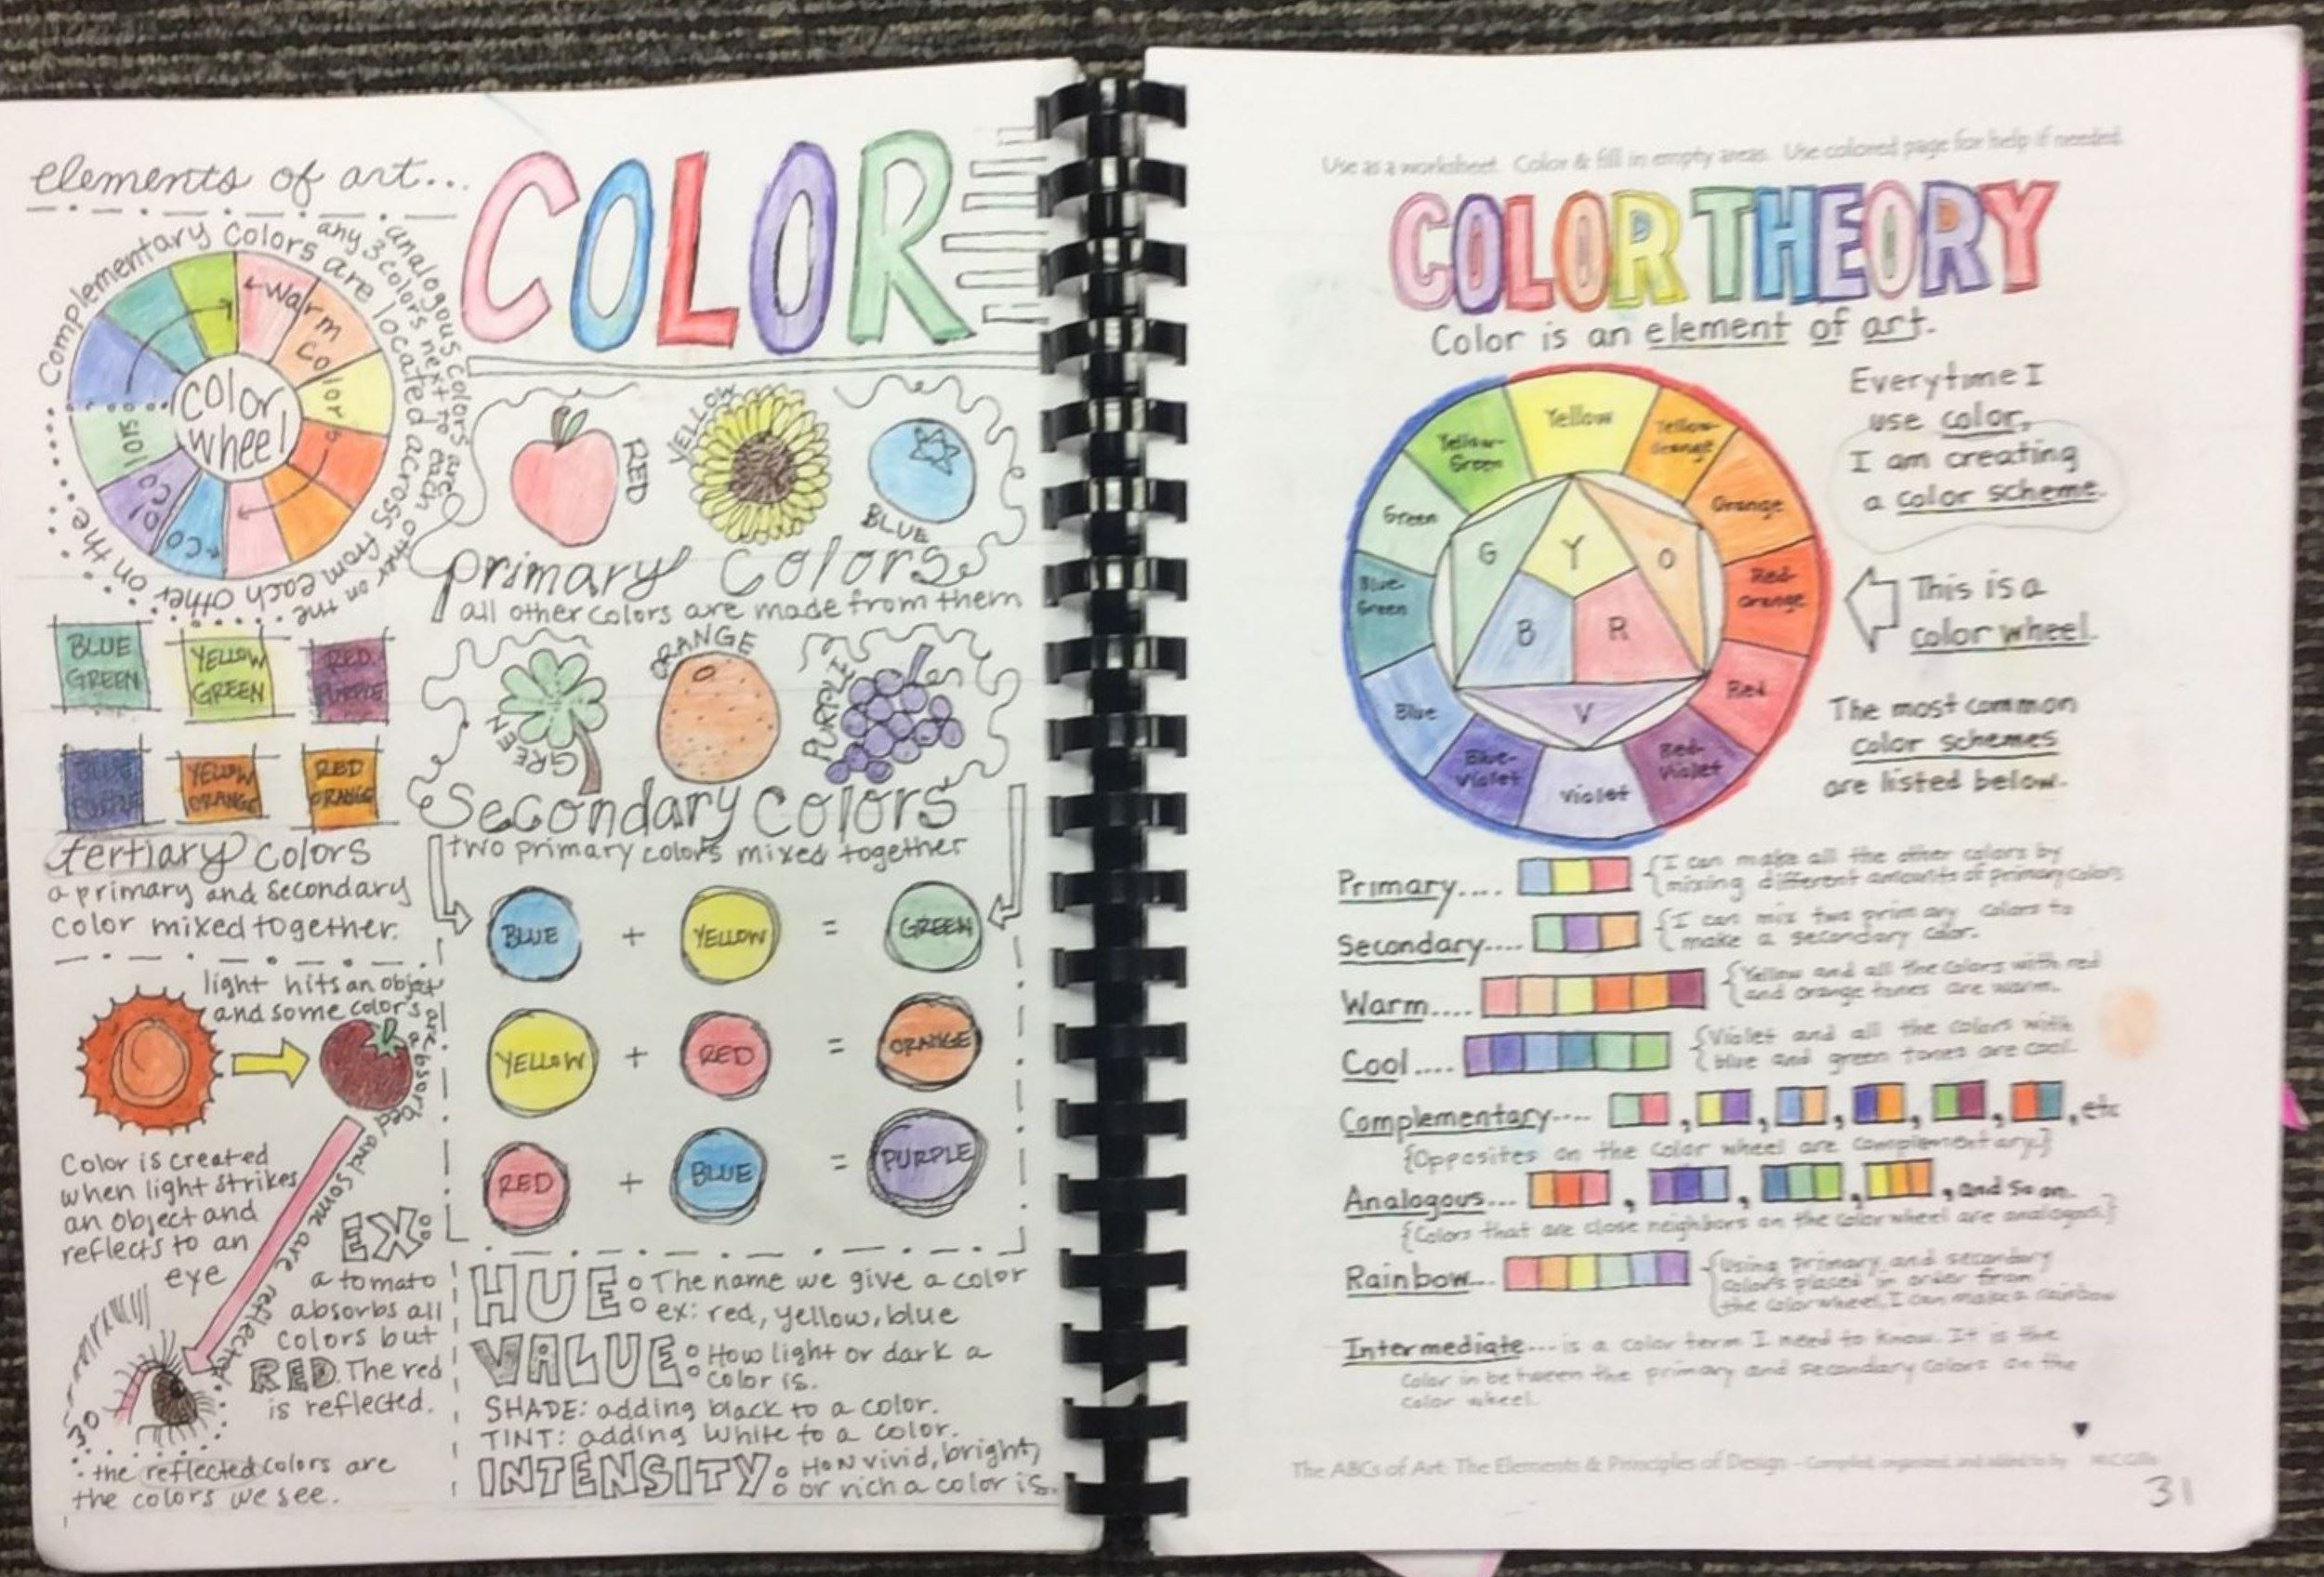 elements of art...
COLOR
Complementary Colors are located across from each other on the
analogous colors are
any 3 colors next to each other on the
Warm Colors
Cool Colors
color
wheel
RED
YELLOW
BLUE
primary colors
all other colors are made from them
BLUE
GREEN
YELLOW
GREEN
RED
PURPLE
BLUE
PURPLE
YELLOW
ORANGE
RED
ORANGE
tertiary colors
a primary and secondary
color mixed together.
GREEN
ORANGE
PURPLE
Secondary Colors
two primary colors mixed together
BLUE + YELLOW = GREEN
YELLOW + RED = ORANGE
RED + BLUE = PURPLE
light hits an object
and some color's are absorbed
and some are reflected
Color is created
when light strikes
an object and
reflects to an
eye
EX:
a tomato
absorbs all
colors but
RED. The red
is reflected.
the reflected colors are
the colors we see.
30
HUE: The name we give a color
ex: red, yellow, blue
VALUE: How light or dark a
color is.
SHADE: adding black to a color.
TINT: adding white to a color.
INTENSITY: How vivid, bright,
or rich a color is.
Use as a worksheet. Color & fill in empty areas. Use colored page for help if needed.
COLOR THEORY
Color is an element of art.
Yellow
Yellow-
Orange
Orange
Red-
Orange
Red
Red-
Violet
Violet
Blue-
Violet
Blue
Blue-
Green
Green
Yellow-
Green
G Y O
B R
V
Everytime I
use color,
I am creating
a color scheme.
This is a
color wheel.
The most common
color schemes
are listed below.
Primary.... {I can make all the other colors by
mixing different amounts of primary colors
Secondary.... {I can mix two primary colors to
make a secondary color.
Warm.... {Yellow and all the colors with red
and orange tones are warm.
Cool.... {Violet and all the colors with
blue and green tones are cool.
Complementary.... , , , , , , etc
{Opposites on the color wheel are complementary.}
Analogous... , , , , and so on.
{Colors that are close neighbors on the color wheel are analogous.}
Rainbow... {Using primary and secondary
colors placed in order from
the color wheel, I can make a rainbow
Intermediate... is a color term I need to know. It is the
color in between the primary and secondary colors on the
color wheel.
The ABCs of Art: The Elements & Principles of Design - Compiled, organized, and added to by
31